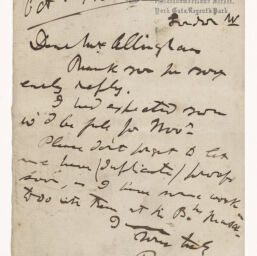 Oct
York Gate, Regent's Park
London NW
Dear Mr Allingham
Thank you for your
early reply.
I had expected you
w'd be full for Nov.
Please don't forget to let
me have (duplicate) proofs
soon, as I have some work
to do with them at the
I
Yours truly